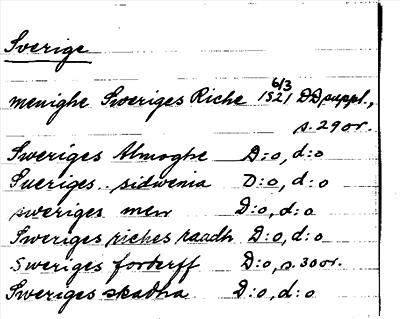 Sverige
menighe Sweriges Riche 6/3 1521 DD suppl.,
s. 29 or.
Sweriges Almoghe D:o, d:o
Sueriges sidwenia D:o, d:o
sweriges men D:o, d:o
Sweriges riches raadh D:o, d:o
Sweriges forderff D:o, s. 30 or.
Sweriges skadha D:o, d:o